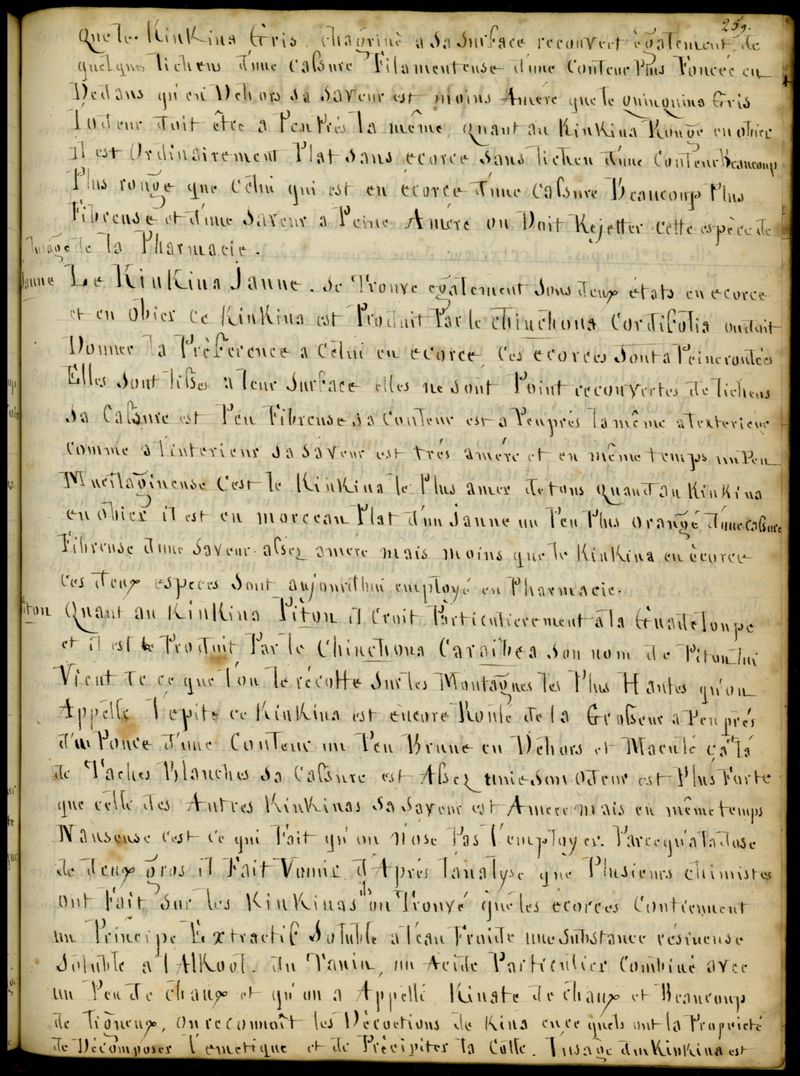 259.
que le Kinkina Gris, chagriné a sa surface recouvert egalement de
quelques lichens d'une Cassure Filamenteuse d'une Couleur Plus Foncée en
Dedans qu'en Dehors sa saveur est moins Amère que le quinquina Gris
l'odeur doit être a Peu Près la même, quant au Kinkina Rouge en obier
il est Ordinairement Plat sans ecorce sans lichen d'une Couleur Beaucoup
Plus rouge que Celui qui est en écorce d'une Cassure Beaucoup Plus
Fibreuse et d'une saveur a Peine Amére on Doit Rejetter Cette espèce de
l'usage de la Pharmacie.
Jaune Le Kinkina Jaune. se Trouve egalement sous deux états en ecorce
et en obier Ce Kinkina est Produit Par le chinchona Cordifolia on doit
Donner la Préférence a Celui en ecorce, Ces ecorces sont a Peine roulées
Elles sont lisses a leur surface elles ne sont Point recouvertes de lichens
sa Cassure est Peu Fibreuse sa Couleur est a Peu près la même a l'exterieur
comme a l'interieur sa saveur est très amére et en même temps un Peu
Mucilagineuse C'est le Kinkina le Plus amer de tous quand au Kinkina
en obier il est en morceau Plat d'un jaune un Peu Plus orangé d'une Cassure
Fibreuse d'une saveur assez amère mais moins que le Kinkina en écorce
Ces deux especes sont aujourd'hui employé en Pharmacie.
Piton Quant au Kinkina Piton il Croit Particulierement a la Guadeloupe
et il est le Produit Par le Chinchona Caraibea son nom de Piton lui
Vient de ce que l'on le récolte sur les Montagnes les Plus Hautes qu'on
Appelle Pepite ce Kinkina est encore Roulé de la Grosseur a Peu près
d'un Pouce d'une Couleur un Peu Brune en Dehors et Maculé çà là
de Taches Blanches sa Cassure est Assez unie son Odeur est Plus Forte
que celle des Autres Kinkinas sa saveur est Amere mais en même temps
Nauseuse c'est ce qui Fait qu'on n'ose Pas l'employer. Parce qu'a la dose
de deux gros il Fait Vomir d'Après l'analyse que Plusieurs chimistes
ont Fait sur les Kinkinas ils on Trouvé que les ecorces Contiennent
un Principe Extractif soluble a l'eau Froide une substance résineuse
soluble a l'Alkool. du Tanin, un Acide Particulier Combiné avec
un Peu de chaux et qu'on a Appellé Kinate de chaux et Beaucoup
de ligneux, On reconnoît les Décoctions de Kina en ce quels ont la Propriété
de Décomposer l'emetique et de Précipiter la Colle. l'usage du Kinkina est